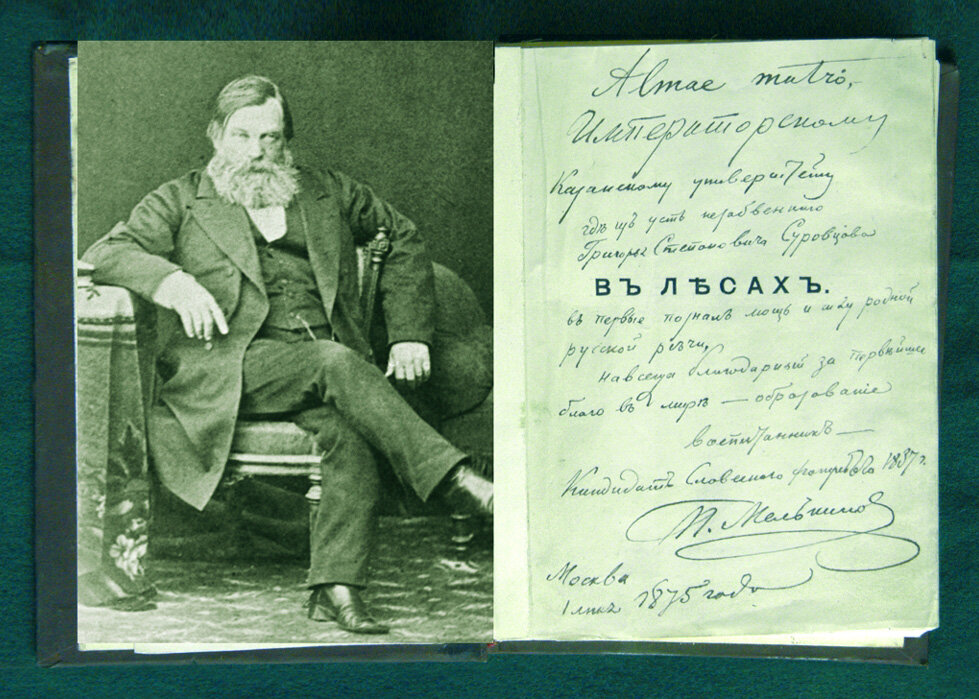 Almae matri,
Императорскому
Казанскому университету
гдѣ изъ устъ незабвеннаго
Григорья Степановича Суровцова
ВЪ ЛѢСАХЪ.
въ первые позналъ мощь и силу родной
русской рѣчи,
навсегда благодарный за первѣйшее
благо въ мирѣ — образованіе
воспитанникъ —
Кандидатъ Словеснаго факультета 1837 г.
П. Мельниковъ
Москва
1875 года